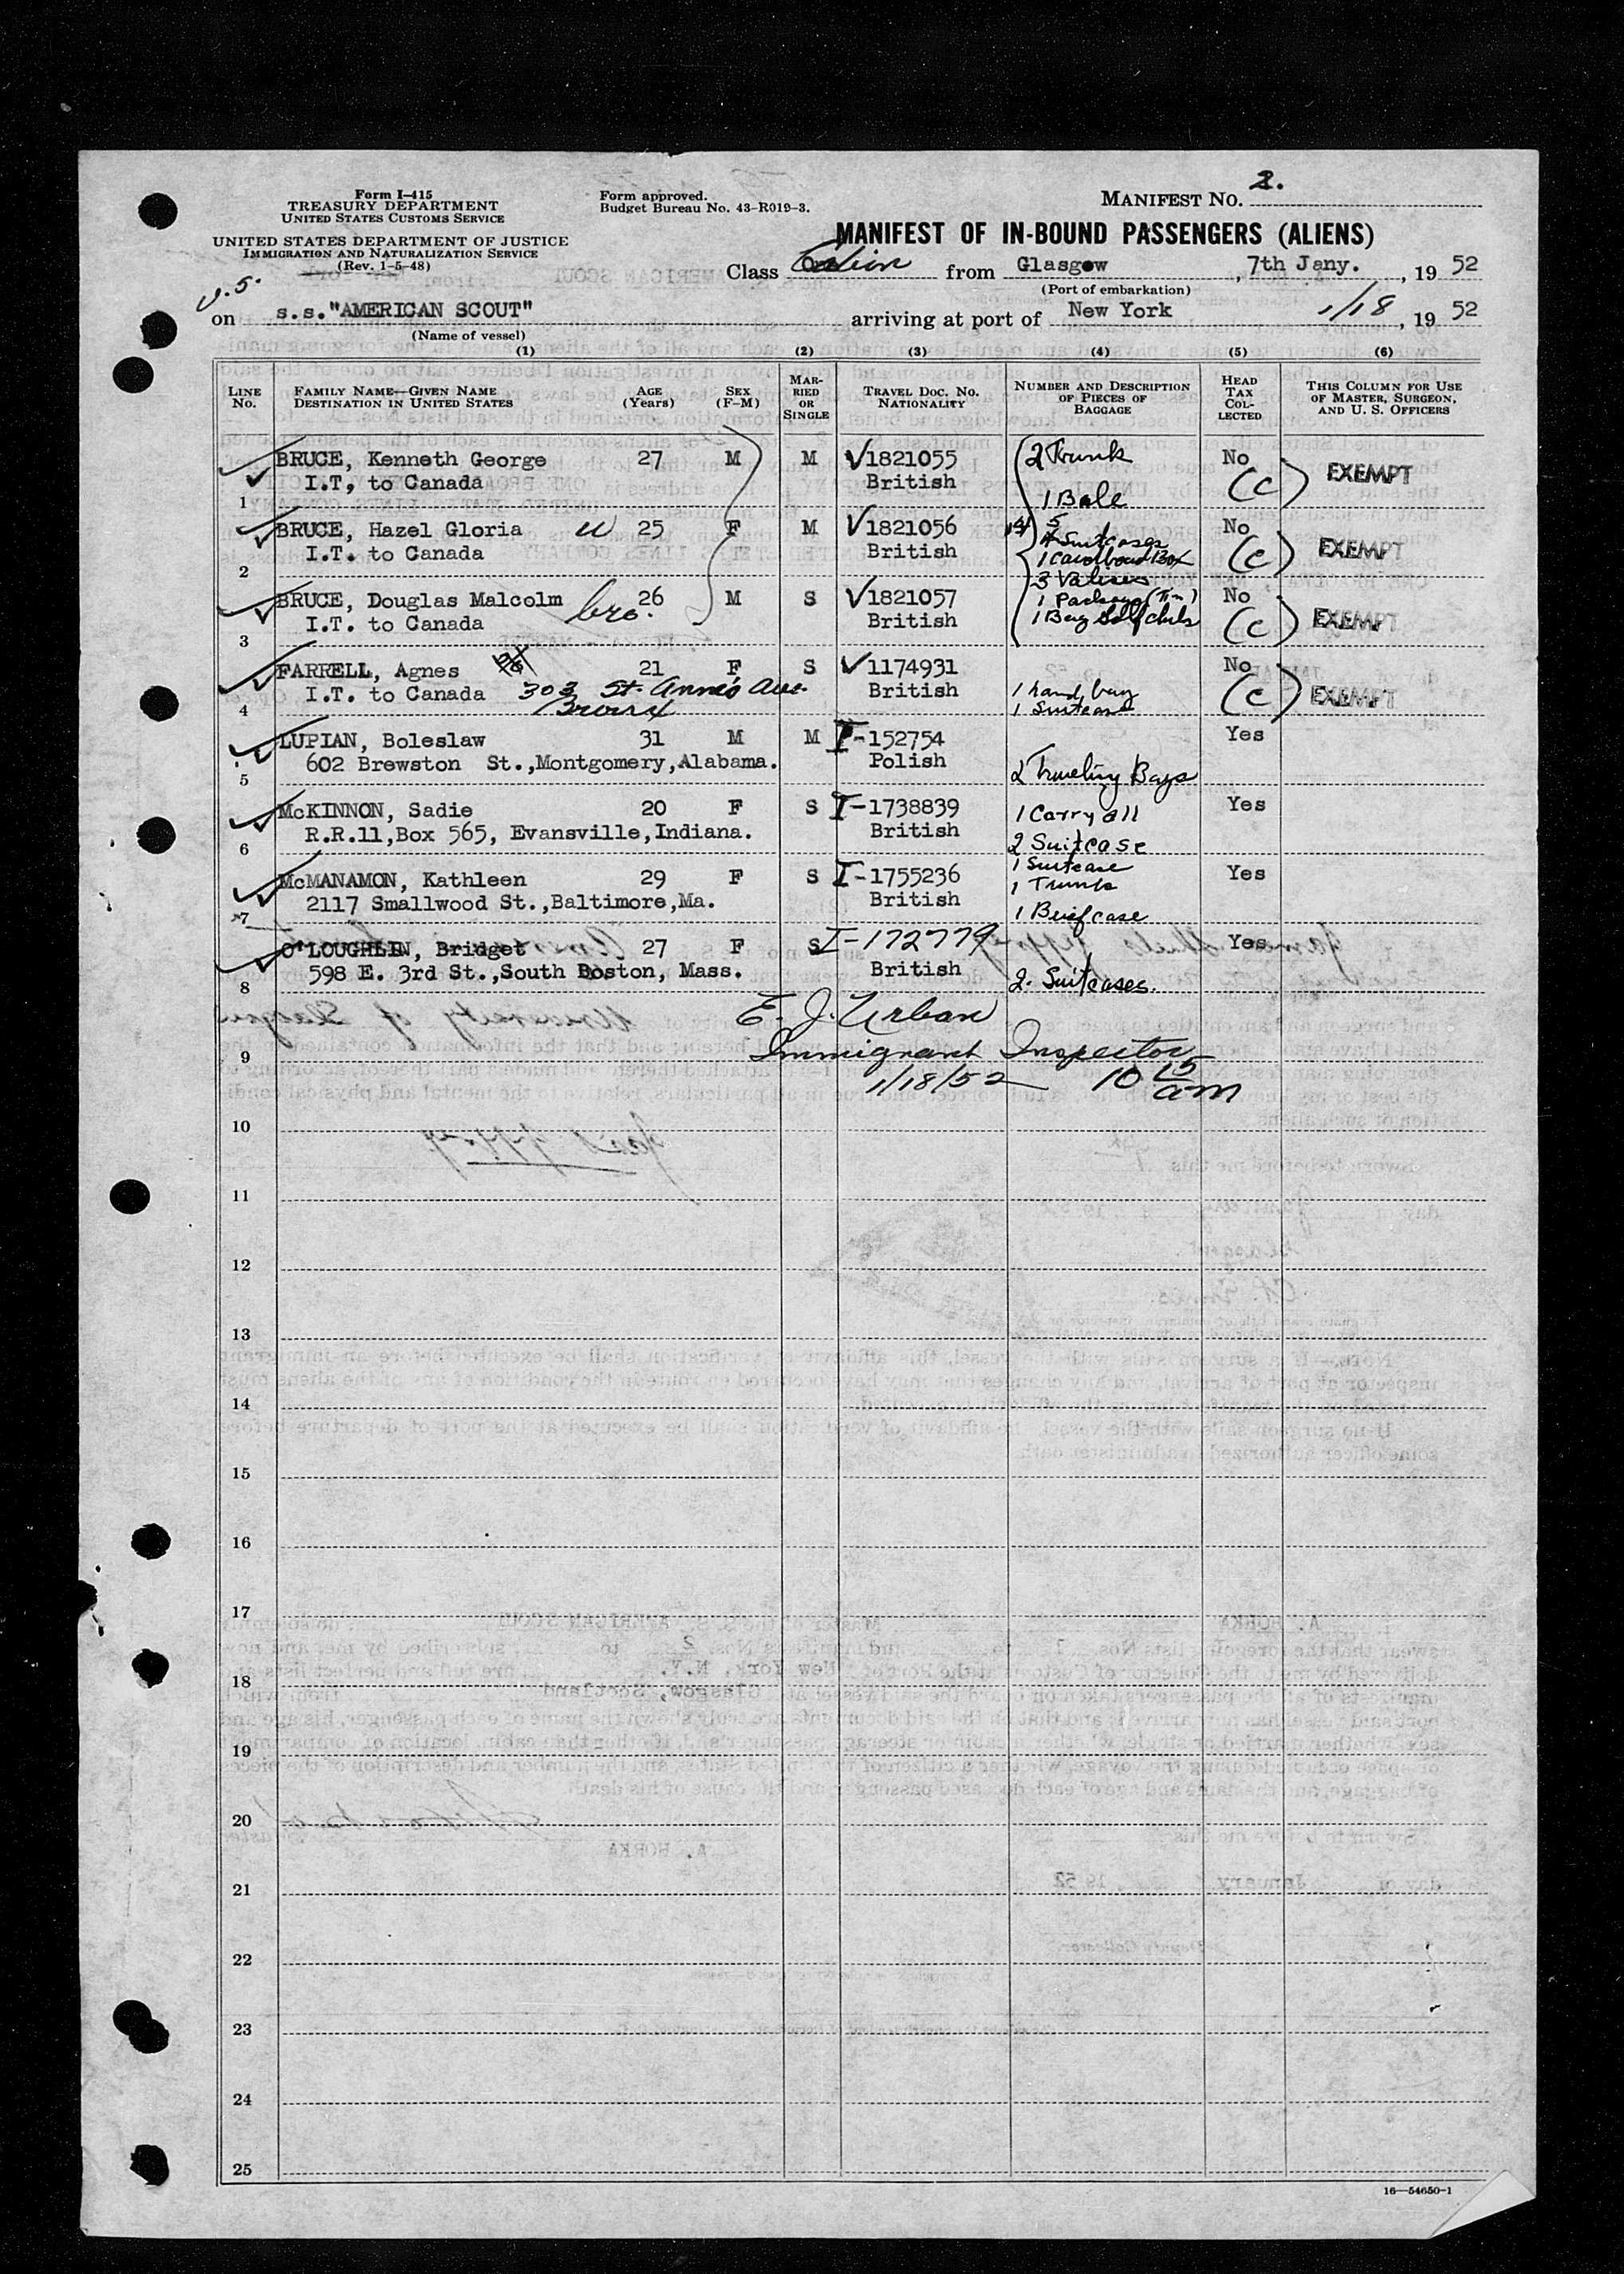 Form I-415
TREASURY DEPARTMENT
UNITED STATES CUSTOMS SERVICE
UNITED STATES DEPARTMENT OF JUSTICE
IMMIGRATION AND NATURALIZATION SERVICE
(Rev. 1-5-48)
Form approved.
Budget Bureau No. 43-R019-3.
MANIFEST NO. 2.
MANIFEST OF IN-BOUND PASSENGERS (ALIENS)
Class Cabin from Glasgow, 7th Jany., 19 52
(Port of embarkation)
U.S.
on s.s."AMERICAN SCOUT" arriving at port of New York 1/18, 19 52
(Name of vessel)
(1) (2) (3) (4) (5) (6)
LINE No. FAMILY NAME—GIVEN NAME DESTINATION IN UNITED STATES AGE (Years) SEX (F-M) MARRIED OR SINGLE TRAVEL DOC. NO. NATIONALITY NUMBER AND DESCRIPTION OF PIECES OF BAGGAGE HEAD TAX COLLECTED THIS COLUMN FOR USE OF MASTER, SURGEON, AND U. S. OFFICERS
BRUCE, Kenneth George 27 M M 1821055 2 Trunk No
1 I.T, to Canada British 1 Bale (C) EXEMPT
BRUCE, Hazel Gloria W 25 F M 1821056 5 Suitcases No
2 I.T. to Canada British 1 Cardboard Box (C) EXEMPT
3 Valises
BRUCE, Douglas Malcolm bro. 26 M S 1821057 1 Package (Tin) No
3 I.T. to Canada British 1 Bag Golf clubs (C) EXEMPT
FARRELL, Agnes 21 F S 1174931 No
4 I.T. to Canada 303 St. Ann's Ave. British 1 hand bag (C) EXEMPT
Bronx 1 Suitcase
LUPIAN, Boleslaw 31 M M I-152754 Yes
5 602 Brewston St.,Montgomery,Alabama. Polish 2 Traveling Bags
McKINNON, Sadie 20 F S I-1738839 1 Carry all Yes
6 R.R.11,Box 565, Evansville,Indiana. British 2 Suitcase
McMANAMON, Kathleen 29 F S I-1755236 1 Suitcase Yes
1 Trunk
7 2117 Smallwood St.,Baltimore,Ma. British 1 Briefcase
O'LOUGHLIN, Bridget 27 F S I-172779 Yes
8 598 E. 3rd St.,South Boston, Mass. British 2. Suitcases.
E. J. Urban
9 Immigrant Inspector
1/18/52 10 15 am
10
11
12
13
14
15
16
17
18
19
20
21
22
23
24
25
16—54650-1